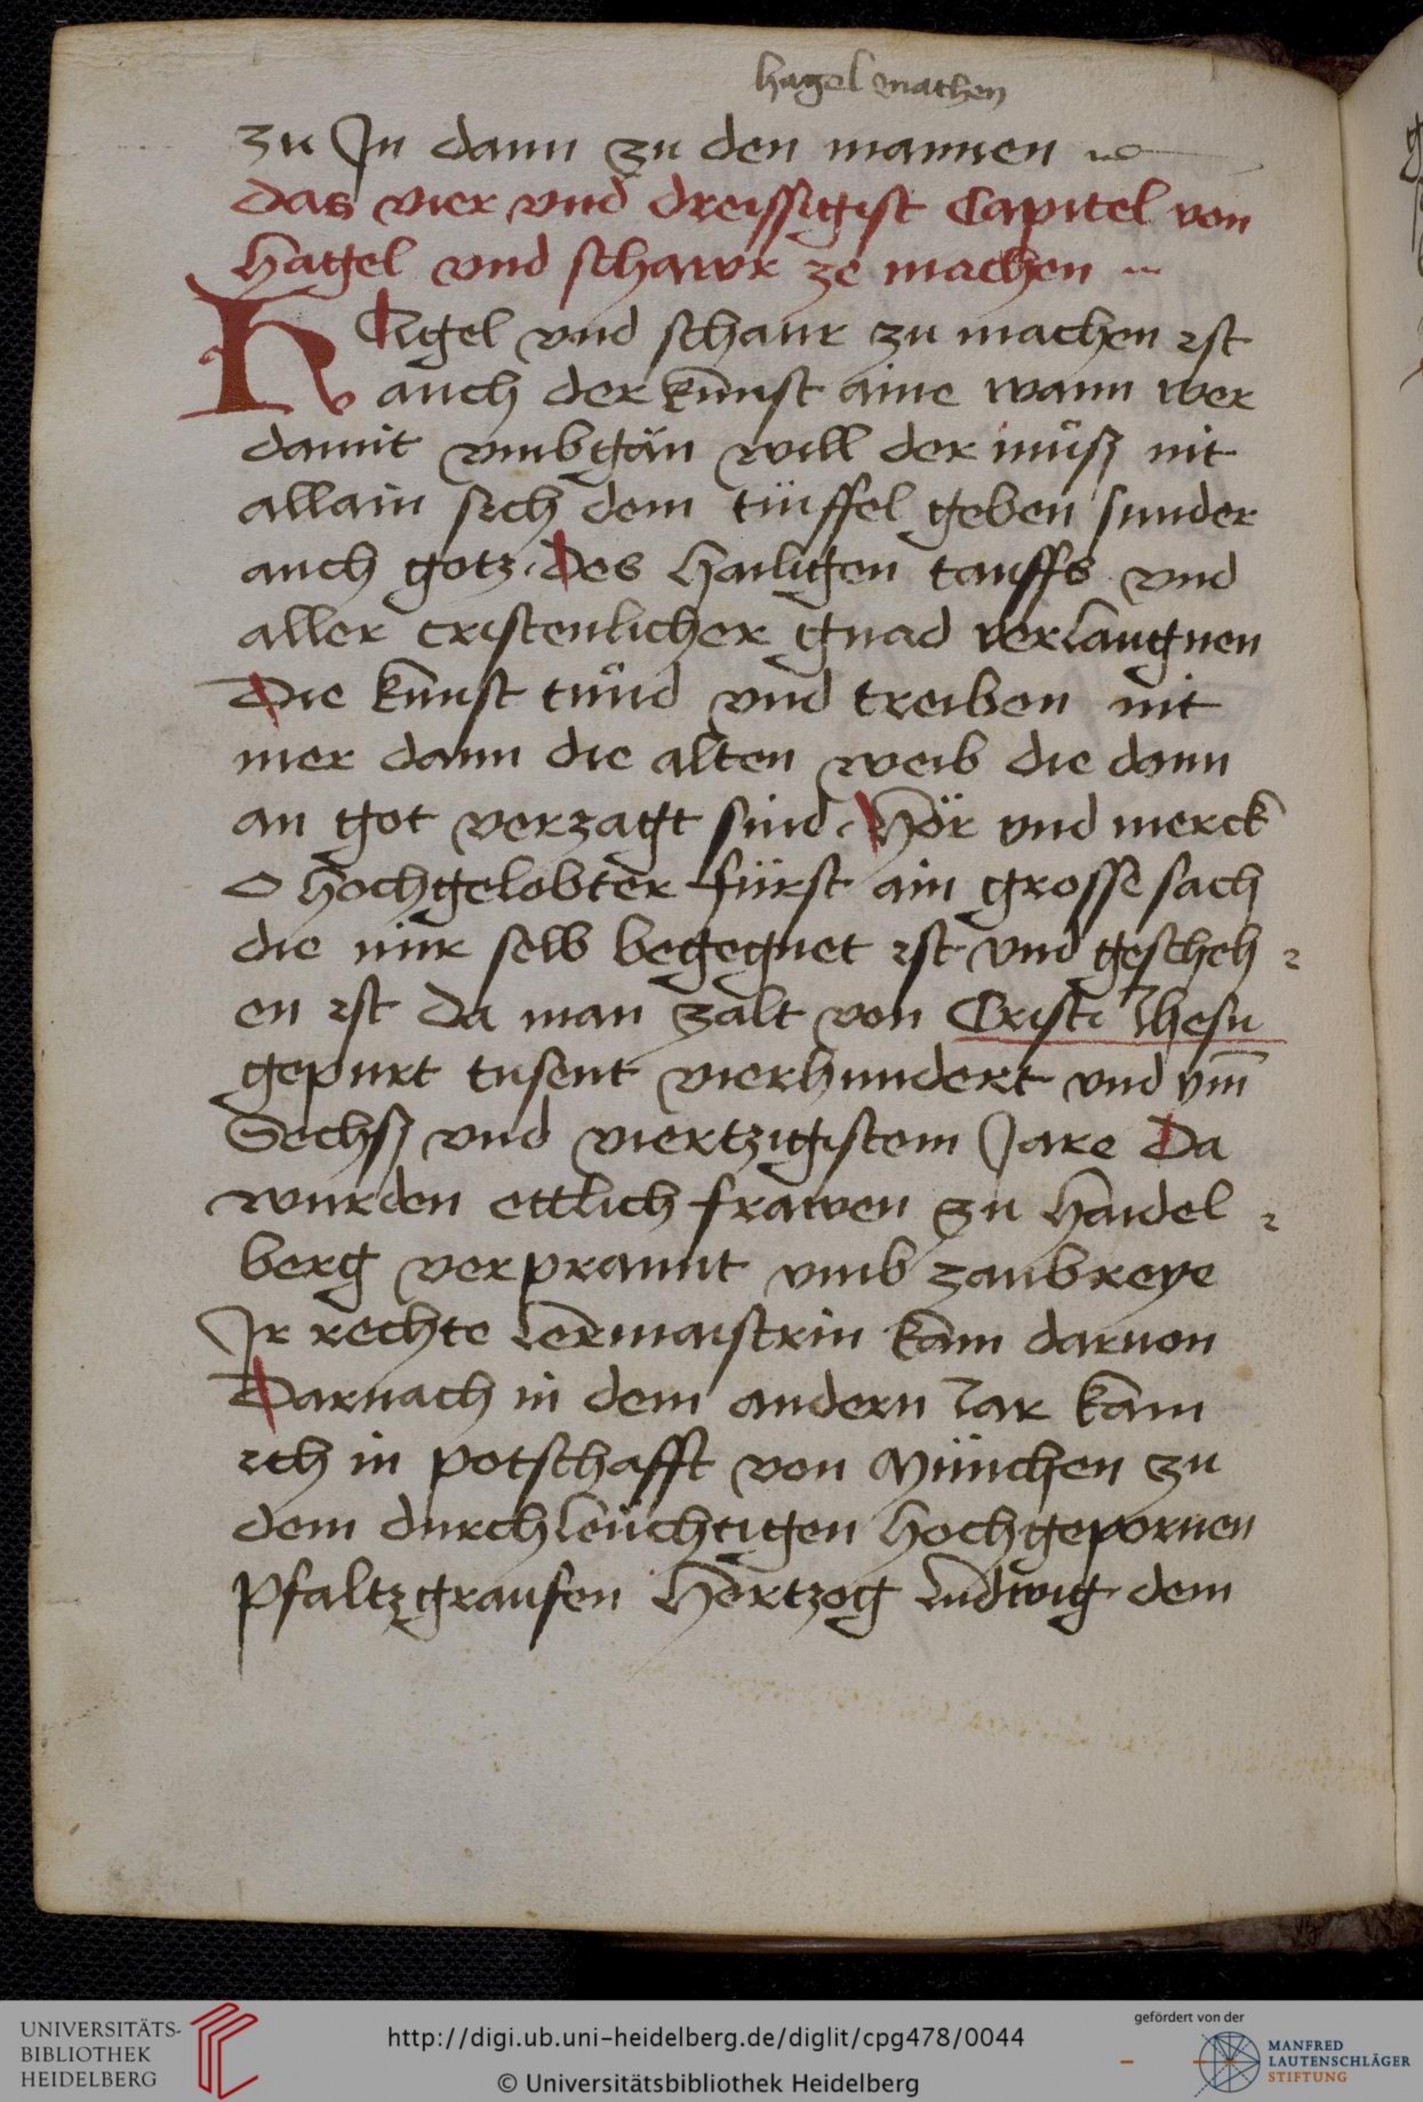 hagel machen
zu In dann zu den mannen
das vier vnd dreissigist Capitel von
hagel vnd schawr ze machen
HAgel vnd schaur zu machen ist
auch der kunst aine wann wer
damit vmbgän will der muͦsz nit
allain sich dem tüffel geben sunder
auch gotz. des hailigen tauffs vnd
aller cristenlicher gnad verlaugnen
Die kunst tuͦnd vnd treiben nit
mer dann die alten weib die dann
an got verzagt sind. Hör vnd merck
O hochgelobter fürst ain grosse sach
die mir selb begegnet ist vnd gescheh
en ist da man zalt von Cristi Ihesu
gepurt tusent vierhundert vnd ym
Sechsz vnd viertzigistem Jare Da
wurden ettlich frawen zu haidel
berg verprannt vmb zaubreye
Ir rechte lermaistrin kam daruon
Darnach in dem andern Iar kam
ich in potschafft von München zu
dem durchleüchtigen hochgepornen
Pfaltzgraufen Hertzog ludwig dem
UNIVERSITÄTS-
BIBLIOTHEK
HEIDELBERG
http://digi.ub.uni-heidelberg.de/diglit/cpg478/0044
© Universitätsbibliothek Heidelberg
gefördert von der
MANFRED
LAUTENSCHLÄGER
STIFTUNG